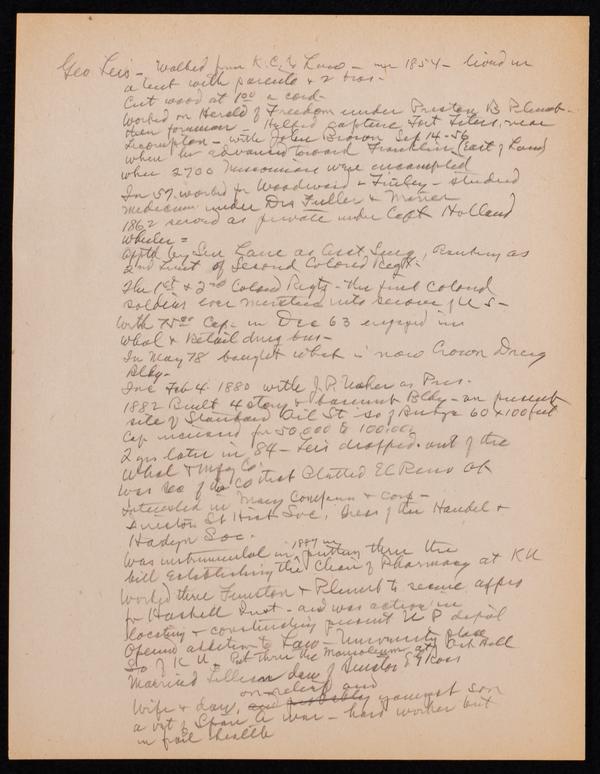 Geo Leis - Walked from K.C. to Law - 1854 - lived in
a tent with parents & 2 bros -
Cut wood at 1.00 a cord -
Worked on Herald of Freedom under Preston B Plumb -
then foreman - Helped capture Fort Titus, near
Lecompton - with John Brown Sep 14 - 56
when he advanced toward Franklin (East of Law)
where 2700 Missourians were encamped
In 57 worked for Woodward & Finley - studied
medicine under Drs Fuller &
1862 served as private under Capt Holland
Wheeler =
Apptd by Gen Lane as Asst Surg, Ranking as
2nd Lieut of Second Colored Regt -
The 1st & 2nd Colored Regts - the first colored
soldiers ever mustered into service of U S -
With 75.00 Cap - in Dec 63 engaged in
whol & Retail drug bus -
In May 78 bought what is now Crown Drug
Bldg -
Inc Feb 4 1880 with J. P. Usher as Pres -
1882 Built 4 story & basement Bldg - on present
site of Standard Oil St so of Bridge 60 x 100 feet
Cap increased fr 50,000 to 100,000
2 yrs later in 84 - Leis dropped out of the
Whol & Mfg Co.
Was Sec of the Co that Platted El Reno Ok
Interested in Many Companies & corp -
Director St Hist Soc, Pres of the Handel &
Hadyn Soc.
Was instrumental in 1887 in putting thru the
bill Establishing the Chair of Pharmacy at KU
Worked thru Funston & Plumb to secure appro
for Haskell Inst - and was active in
locating & constructing present U P depot
Opened addition to Law - University place
So of K U - Put thru the Mausoleum at Oak Hill
Married Lillian dau of Senator E G Ross
Wife & dau, on relief and youngest son
a vet of Span A war - hard worker but
in frail health